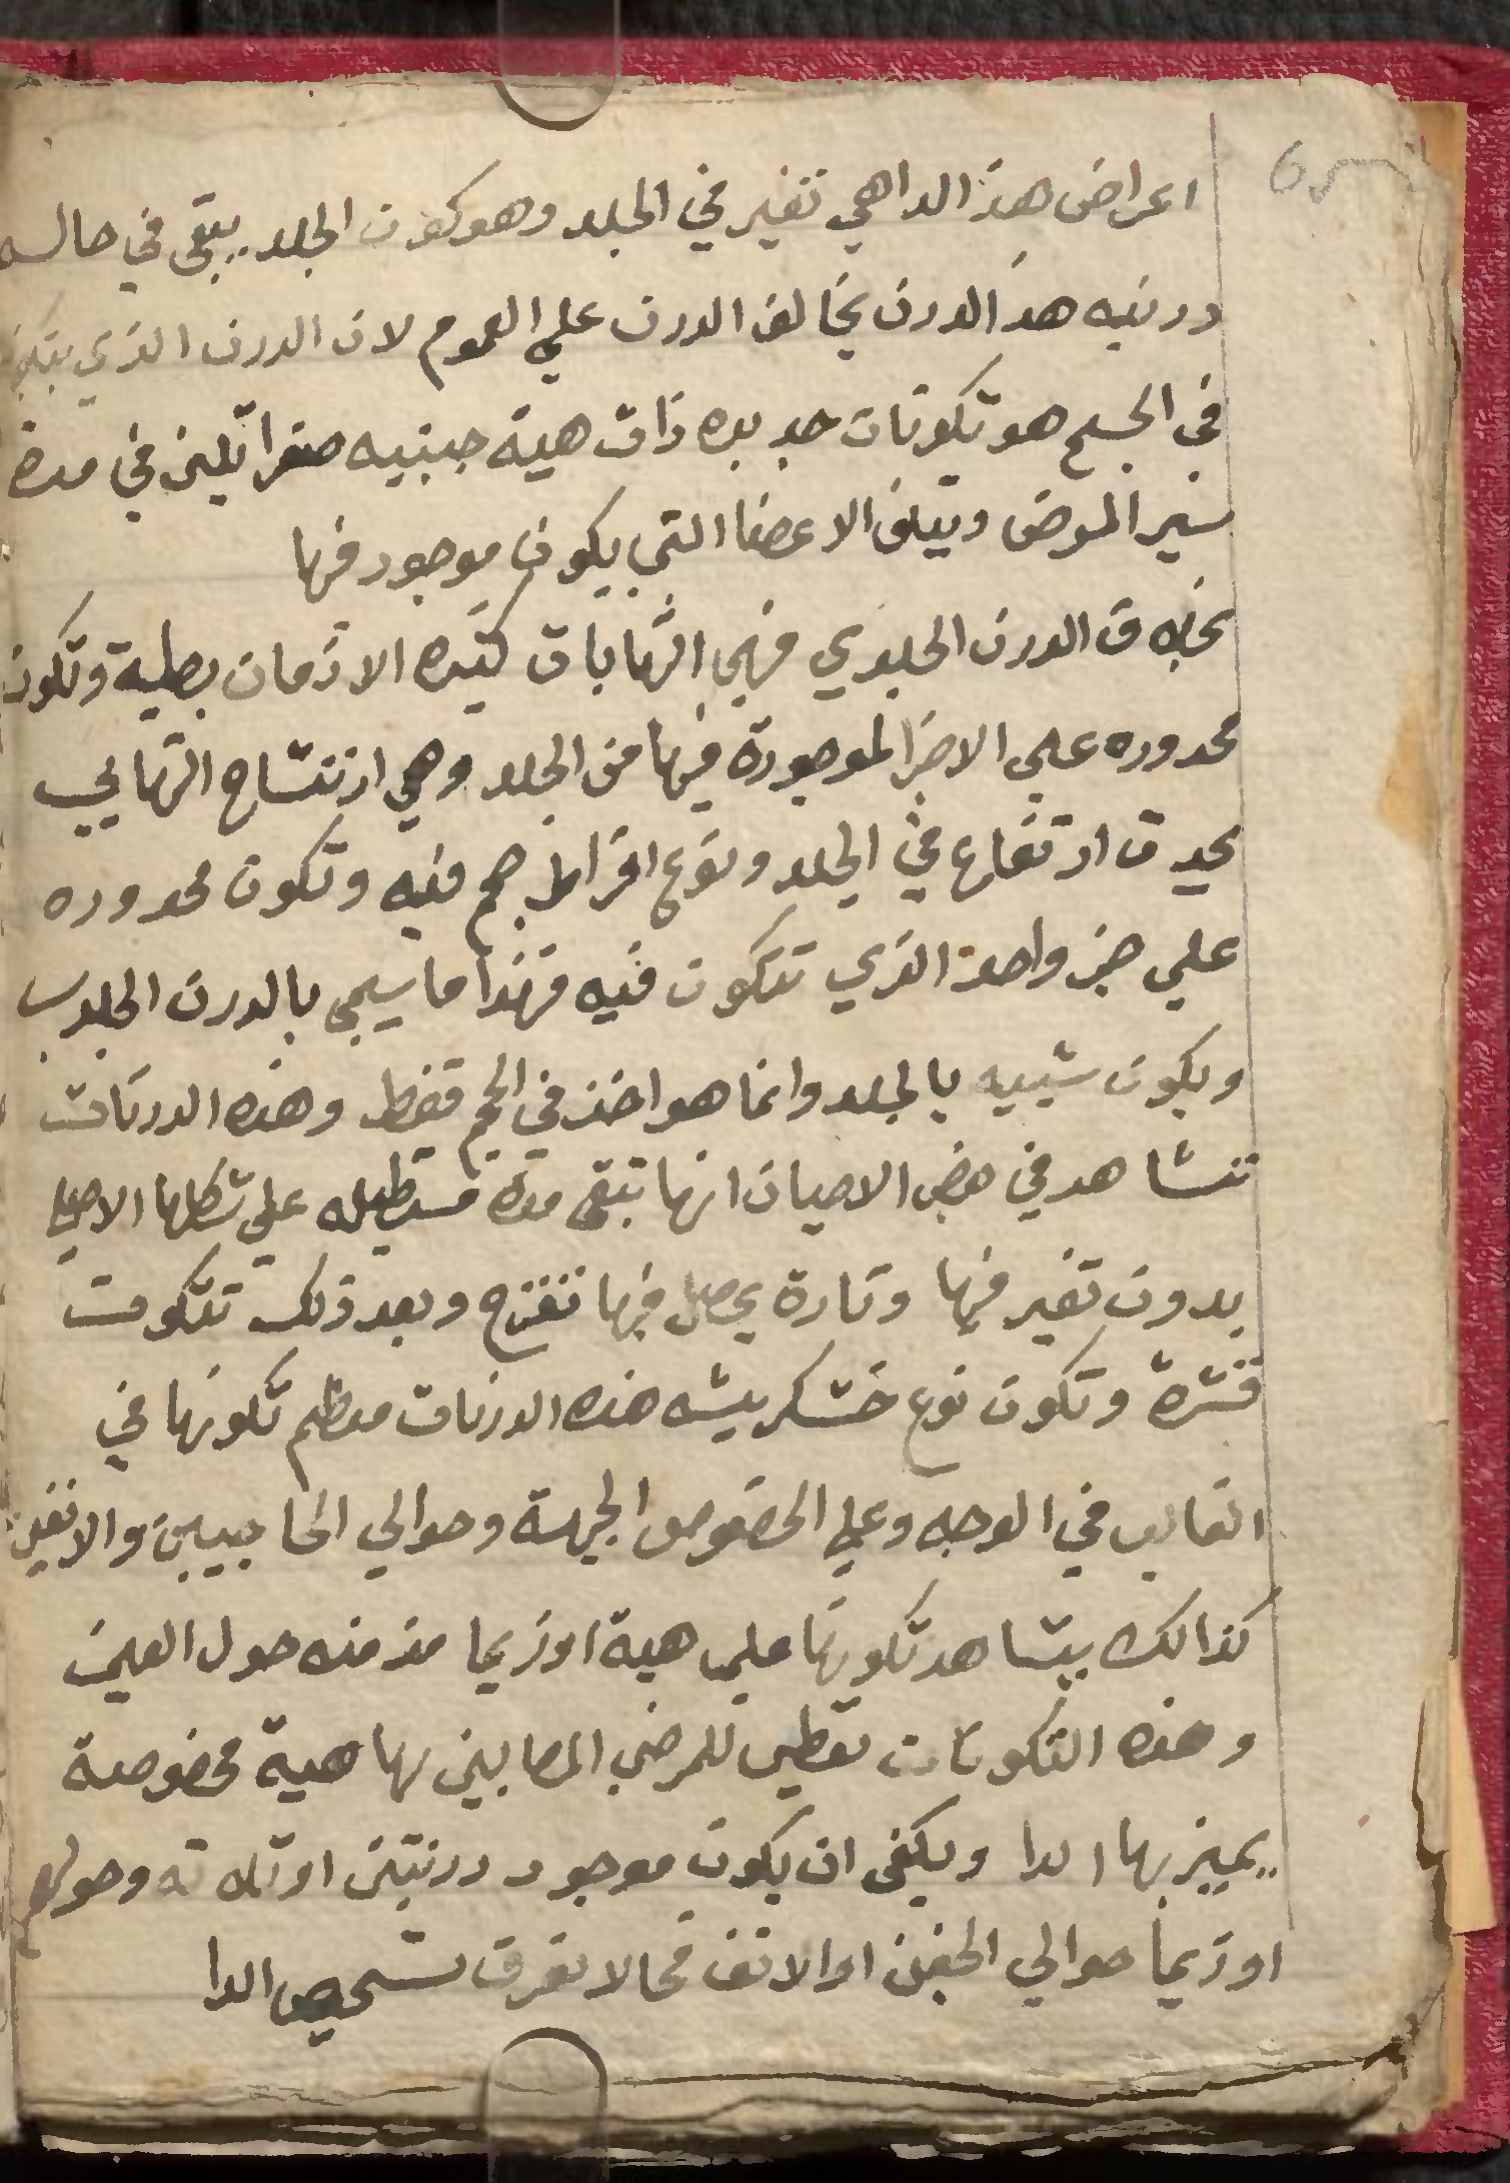 اعراض هذ الدا هي تغير في الجلد وهو كون الجلد يبقى في حاله
درنيه هذ الدرن يخالف الدرن علي العموم لان الدرن الذي يتكون
في الجسم هو تكونات جديده ذات هية جبنيه صفرا تلين في مدة
سير المرض ويتلف الاعضا التي يكون موجود فيها
بخلاف الدرن الجلدي فهي التهابات كتيره الازمان بطية وتكون
محدوده علي الاجزا الموجودة فيها من الجلد وهي ارتشاح التهابي
يحدث ارتفاع في الجلد ونوع افراط جم فيه وتكون محدوده
علي جز واحد الذي تتكون فيه فهذا ما يسمي بالدرن الجلدي
ويكون شبيه بالجلد وانما هو اخذ في الحجم فقط وهذه الدرنات
تشاهد في بعض الاحيان انها تبقى مدة مستطيله علي شكلها الاصلي
بدون تغير فيها وتارة يحصل فيها تقرح وبعد ذلك تتكون
قشرة وتكون نوع خشكريشه هذه الدرنات معظم تكونها في
الغالب في الوجه وعلي الخصوص الجبهة وحوالي الحاجبين والانفين
كذالك يشاهد تكونها علي هية اوزيما مزمنه حول العين
وهذه التكونات تعطي للمرضي المصابين بها هية مخصوصة
يميز بها الدا ويكفي ان يكون موجود درنتين او تلاته وحولهم
اوزيما حوالي الجفن او الانف فحالا نعرف تشحيص الدا